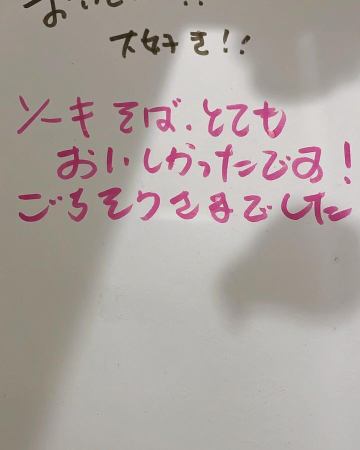 大好き!!
ソーキそば、とても
おいしかったです!
ごちそうさまでした